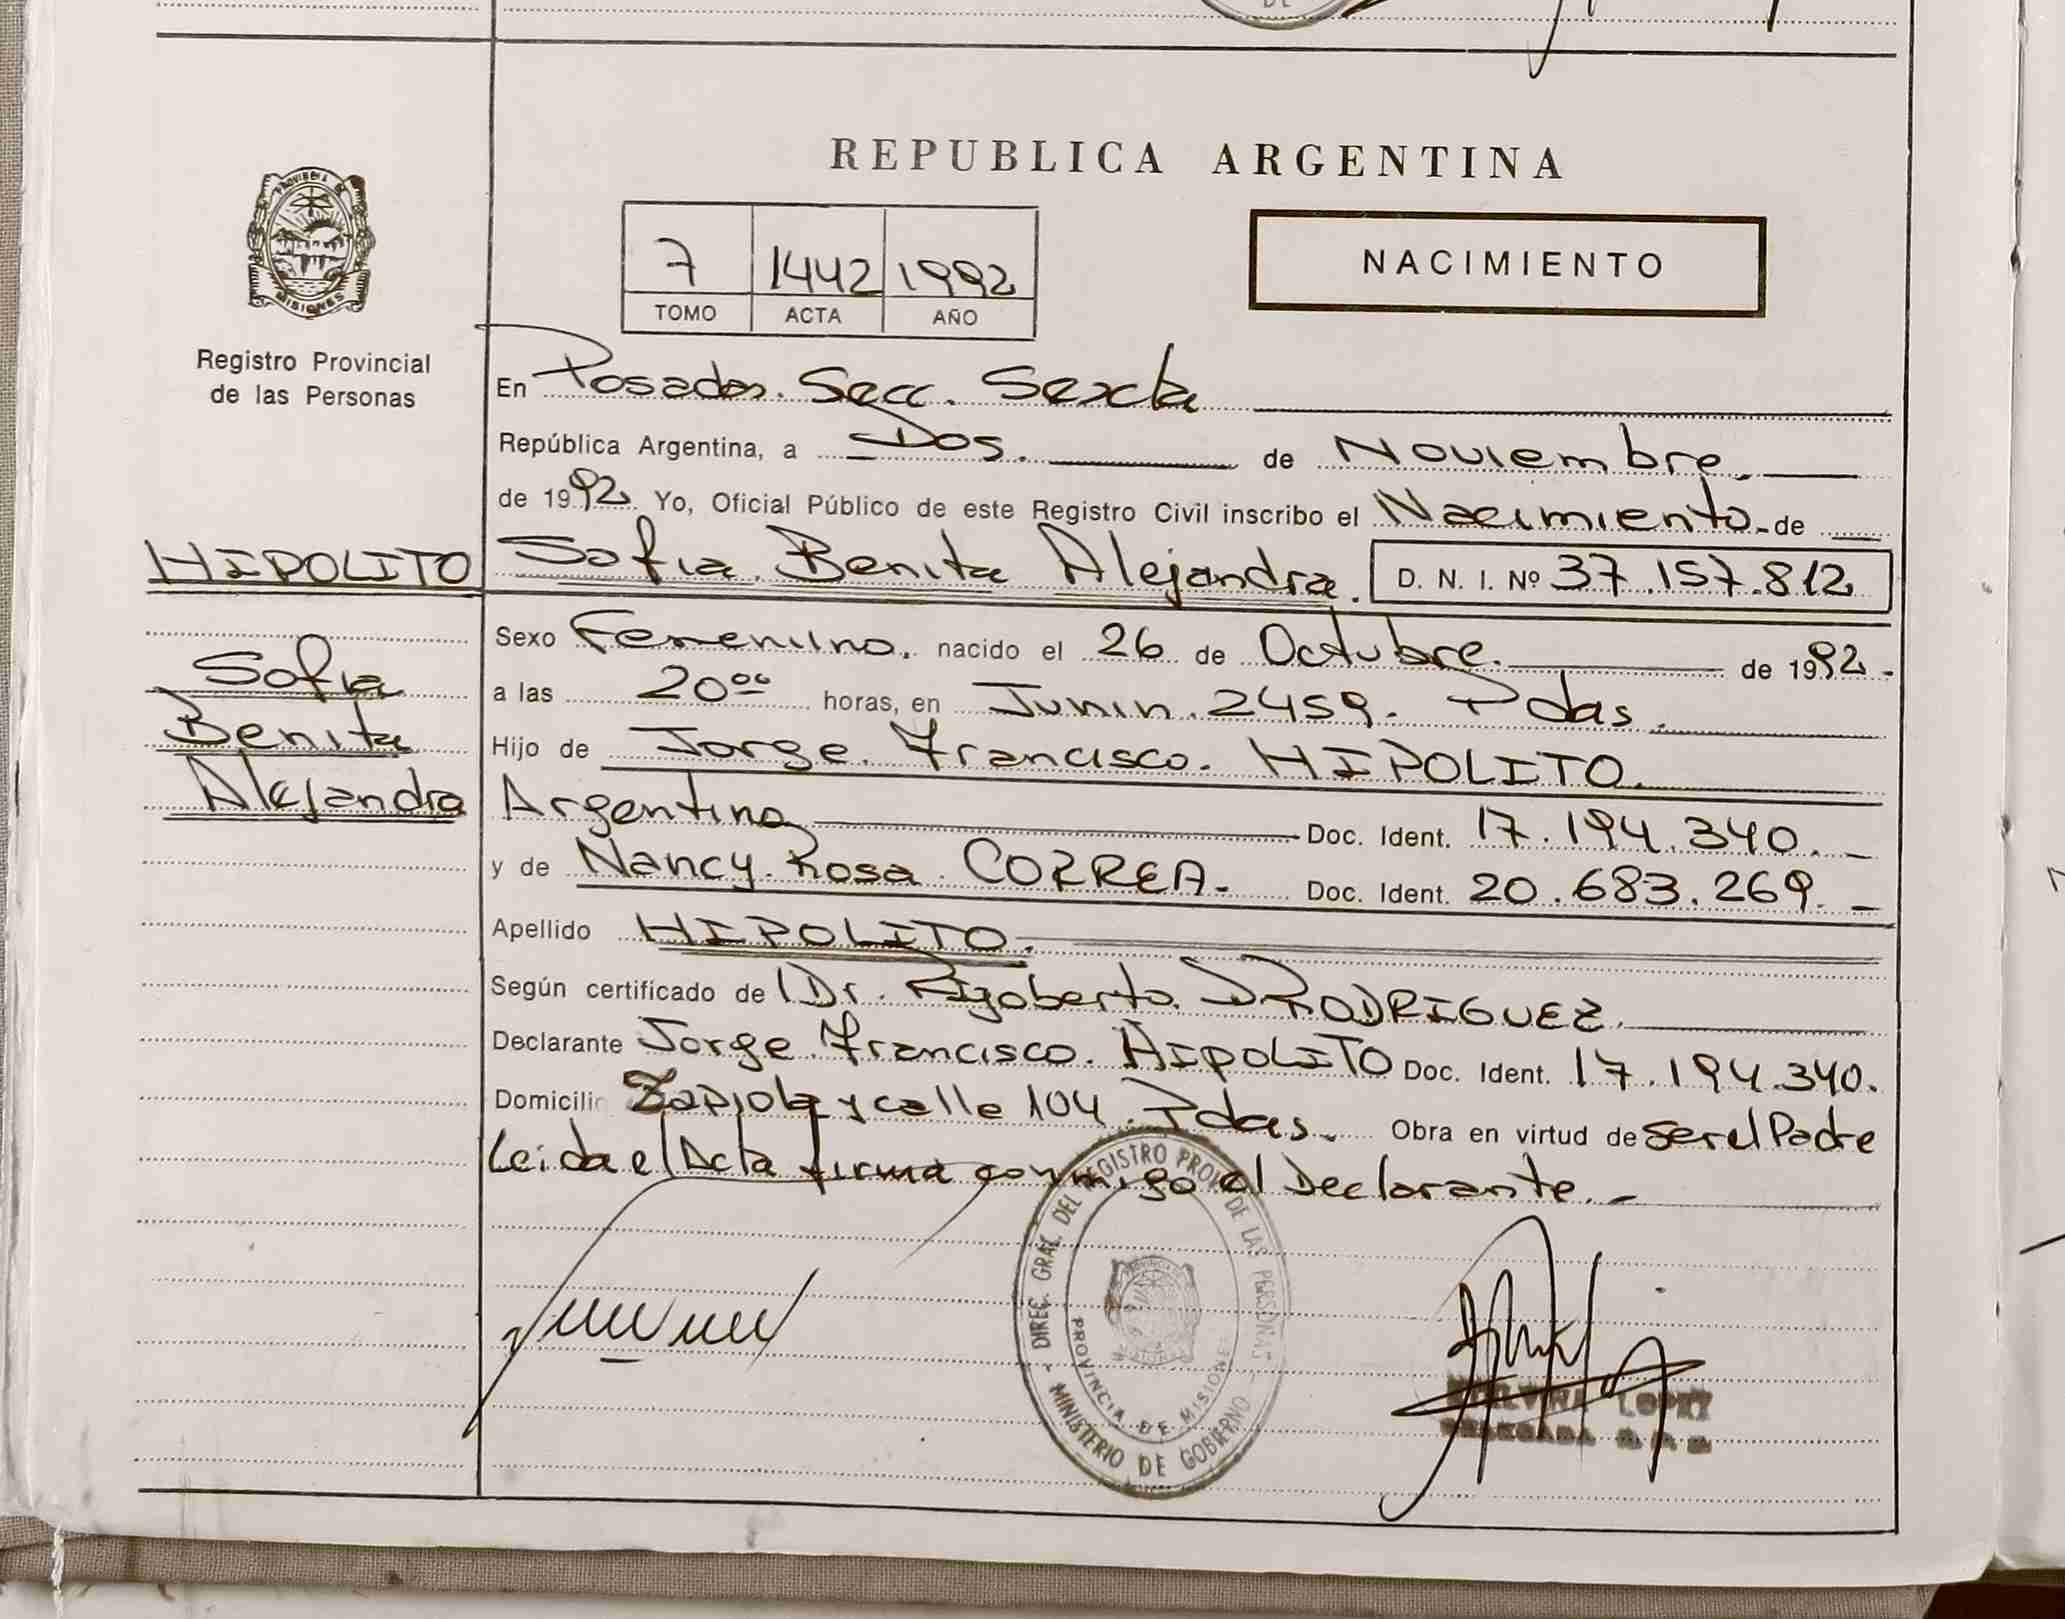 REPUBLICA ARGENTINA
PROVINCIA DE
MISIONES
Registro Provincial
de las Personas
7 1442 1992
TOMO ACTA AÑO
NACIMIENTO
En Posadas. Secc. Sexta
República Argentina, a Dos. de Noviembre.
de 1992 Yo, Oficial Público de este Registro Civil inscribo el Nacimiento. de
HIPOLITO Sofia Benita Alejandra. D. N. I. Nº 37.157.812
Sexo Femenino. nacido el 26 de Octubre. de 1992.
Sofia
a las 20⁰⁰ horas, en Junin. 2459. Pdas.
Benita
Hijo de Jorge. Francisco. HIPOLITO.
Alejandra
Argentino Doc. Ident. 17.194.340.
y de Nancy. Rosa. CORREA. Doc. Ident. 20.683.269.
Apellido HIPOLITO.
Según certificado de Dr. Rigoberto RODRIGUEZ.
Declarante Jorge. Francisco. HIPOLITO Doc. Ident. 17.194.340.
Domicilio Zapiola y calle 104. Pdas. Obra en virtud de Ser el Padre
Leida el Acta firma conmigo el Declarante.
DIREC. GRAL. DEL REGISTRO PROV. DE LAS PERSONAS
PROVINCIA DE MISIONES
MINISTERIO DE GOBIERNO
LOPEZ